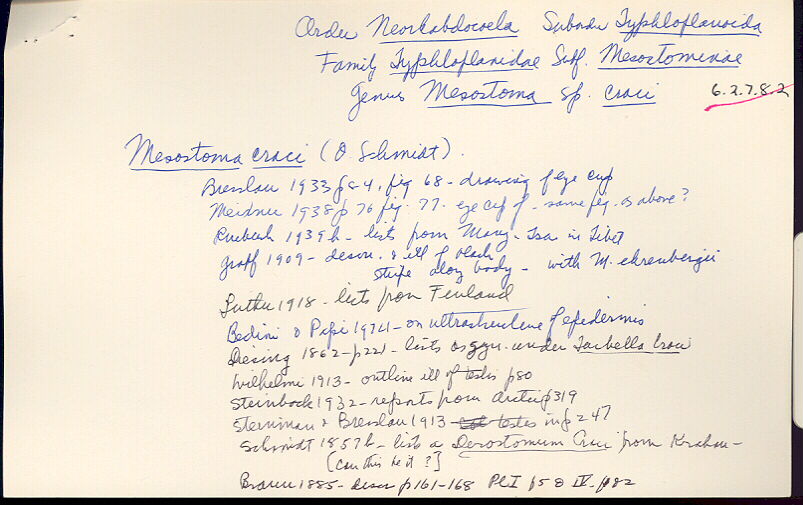 Order Neorhabdocoela Suborder Typhloplanoida
Family Typhloplanidae Subf. Mesostominae
Genus Mesostoma sp. craci
6.2.7.8.2
Mesostoma craci (O Schmidt).
Bresslau 1933 p84, fig 68 - drawing of eye cup
Meixner 1938 p 76 fig. 77. eye cup of - same fig. as above?
Ruebush 1939b - lists from Mang-Tsa in Tibet
Graff 1909 - descr. & ill of black
stripe along body - with M. ehrenbergii
Luther 1918 - lists from Finland
Bedini & Papi 1974 - on ultrastructure of epidermis
Diesing 1862 - p221 - lists as syn. under Turbella Craci
Wilhelmi 1913 - outline ill of testis p80
Steinbock 1932 - reports from arctic p319
Steinman & Bresslau 1913 - testes in p 247
Schmidt 1857b - lists a Derostomum Craci from Krakau -
[Can this be it?]
Braun 1885 - descr p161-168 Pl I p58 IV - p82